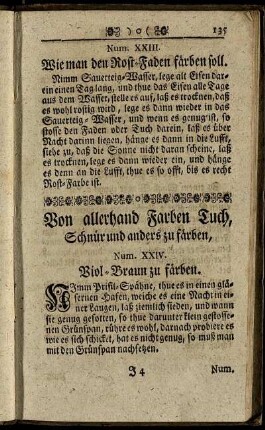 135
Num. XXIII.
Wie man den Rost-Faden färben soll.
Nimm Sauerteig-Wasser, lege alt Eisen dar-
ein einen Tag lang, und thue das Eisen alle Tage
aus dem Wasser, stelle es auf, laß es trocknen, daß
es wohl rostig wird, lege es dann wieder in das
Sauerteig-Wasser, und wenn es genug ist, so
stosse den Faden oder Tuch darein, laß es über
Nacht darinn liegen, hänge es dann in die Lufft,
siehe zu, daß die Sonne nicht daran scheine, laß
es trocknen, lege es dann wieder ein, und hänge
es denn an die Lufft, thue es so offt, bis es recht
Rost-Farbe ist.
Von allerhand Farben Tuch,
Schnür und anders zu färben,
Num. XXIV.
Viol-Braun zu färben.
Nimm Prisil-Spähne, thue es in einen glä-
sernen Hafen, weiche es eine Nacht in ei-
ner Laugen, laß ziemlich sieden, und wann
sie genug gesotten, so thue darunter klein gestosse-
nen Grünspan, rühre es wohl, darnach probiere es
wie es sich schicket, hat es nicht genug, so muß man
mit den Grünspan nachsetzen.
J 4
Num.